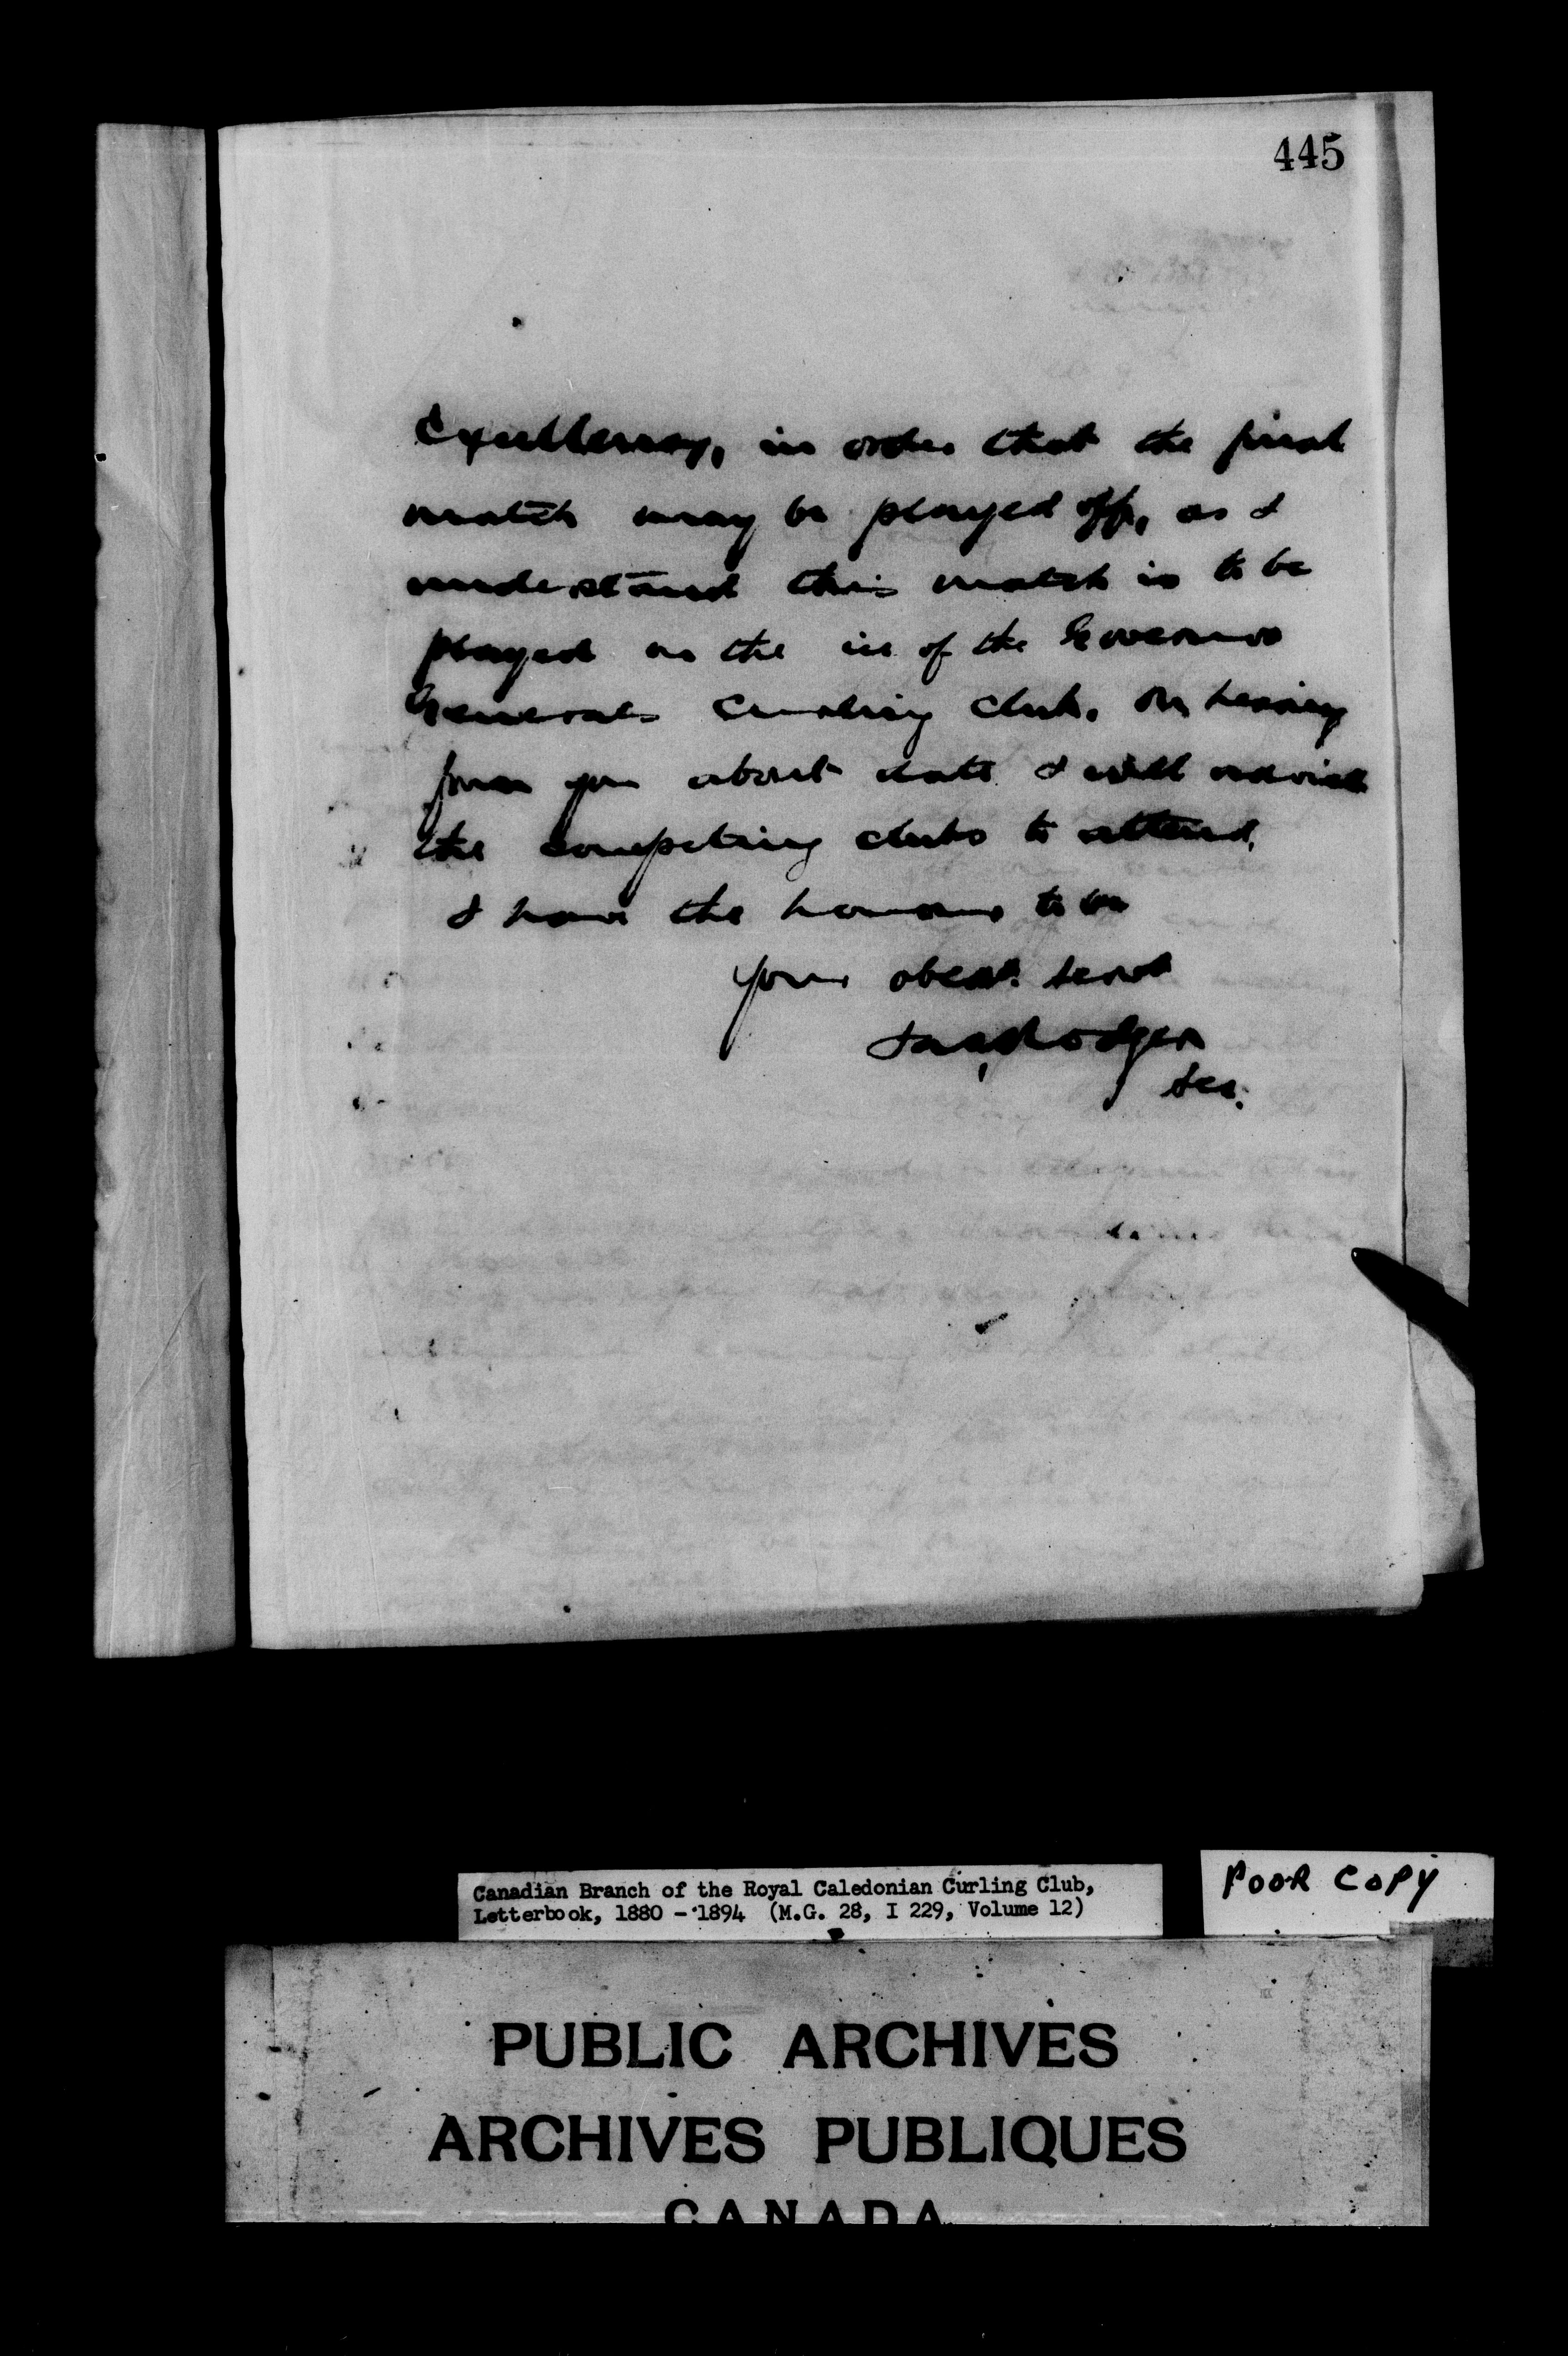 445
Excellency, in order that the final
match may be played off, as I
understand this match is to be
played on the ice of the Governor
Generals Curling Club. On hearing
from you about date I will advise
the competing clubs to attend.
I have the honour to be
Your obedt. Servt
Jas. Rodger
Sec.
Canadian Branch of the Royal Caledonian Curling Club,
Letterbook, 1880 - 1894 (M.G. 28, I 229, Volume 12)
POOR COPY
PUBLIC ARCHIVES
ARCHIVES PUBLIQUES
CANADA